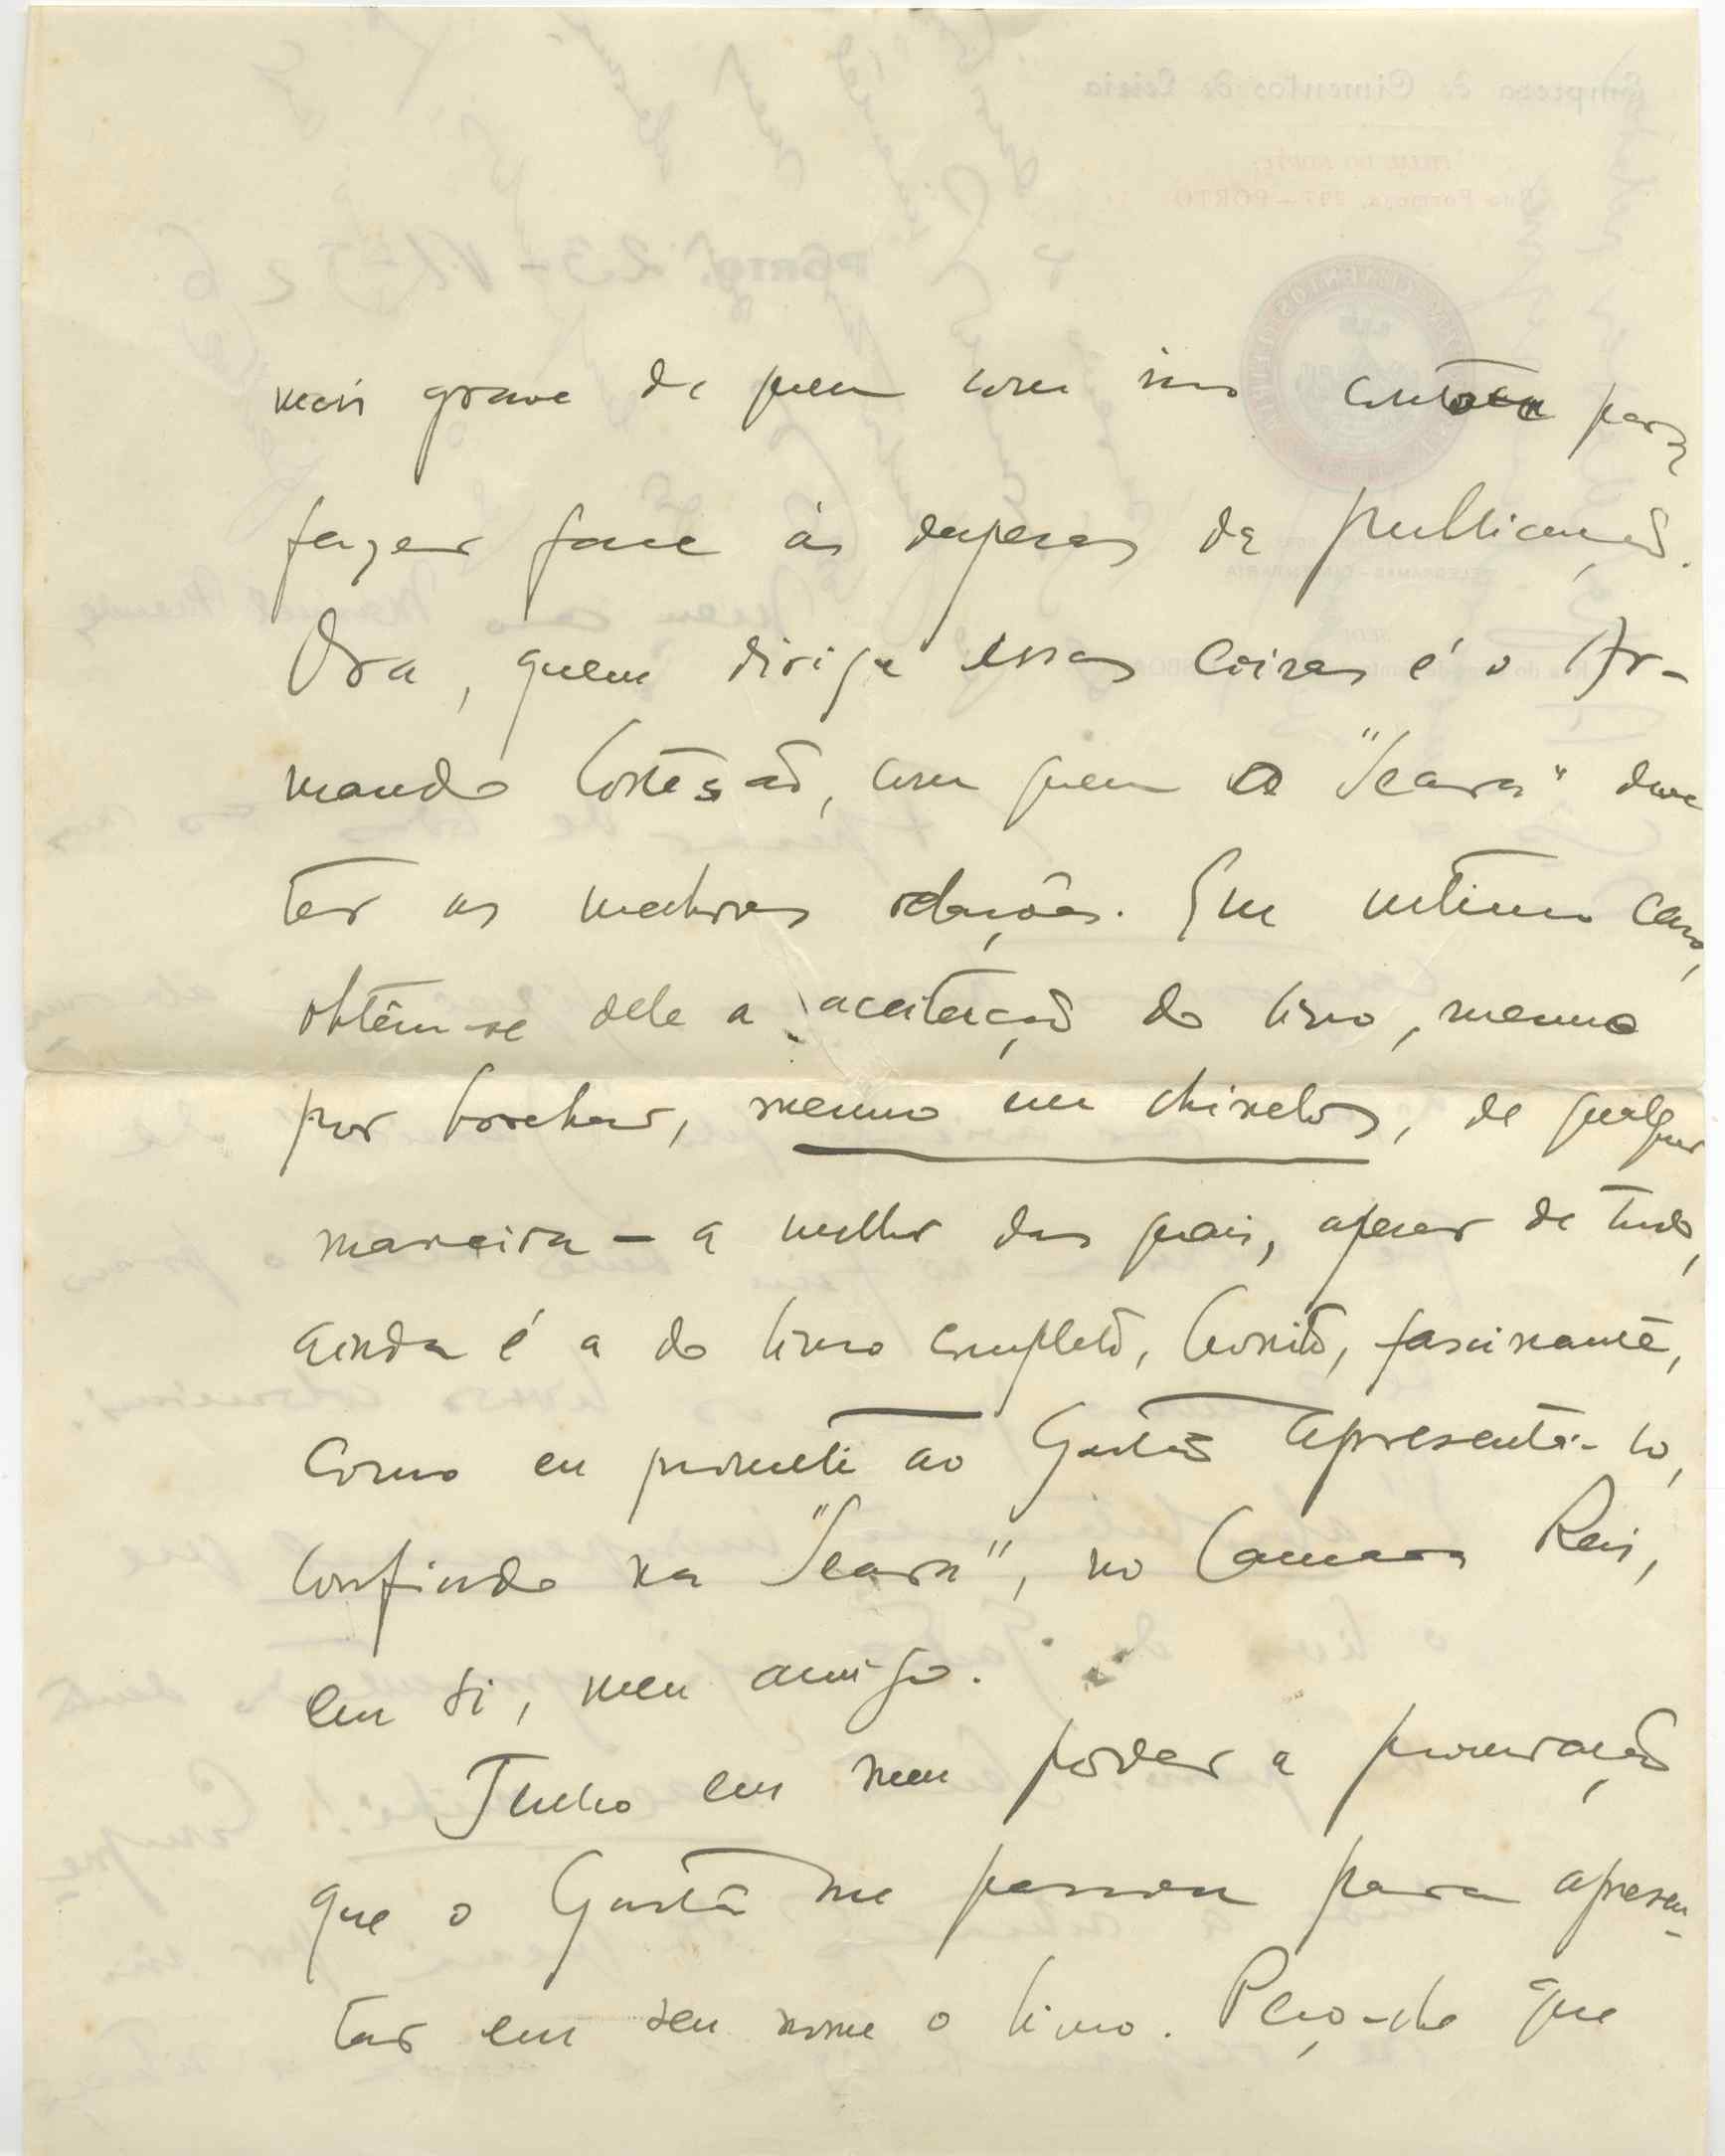 mais grave de quem com isso contava para
fazer face às despesas da publicação.
Ora, quem dirige essas coisas é o Ar-
mando Cortesão, com quem a "Seara" deve
ter as melhores relações. Em ultimo caso,
obtêm-se dele a aceitação do livro, mesmo
por brochar, mesmo em chinelos, de qualquer
maneira — a melhor das quais, apesar de tudo,
ainda é a do livro completo, bonito, fascinante,
como eu prometi ao Gastão apresentá-lo,
confiado na "Seara", no Camara Reis,
em si, meu amigo.
Tenho em meu poder a procuração
que o Gastão me passou para apresen-
tar em seu nome o livro. Peço-lhe que